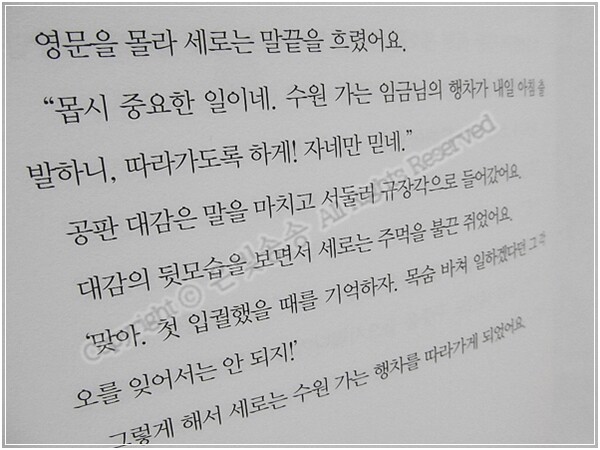 영문을 몰라 세로는 말끝을 흐렸어요.
“몹시 중요한 일이네. 수원 가는 임금님의 행차가 내일 아침 출
발하니, 따라가도록 하게! 자네만 믿네.”
공판 대감은 말을 마치고 서둘러 규장각으로 들어갔어요.
대감의 뒷모습을 보면서 세로는 주먹을 불끈 쥐었어요.
‘맞아. 첫 입궐했을 때를 기억하자. 목숨 바쳐 일하겠다던 그 각
오를 잊어서는 안 되지!’
그렇게 해서 세로는 수원 가는 행차를 따라가게 되었어요.
Copyright © All Rights Reserved